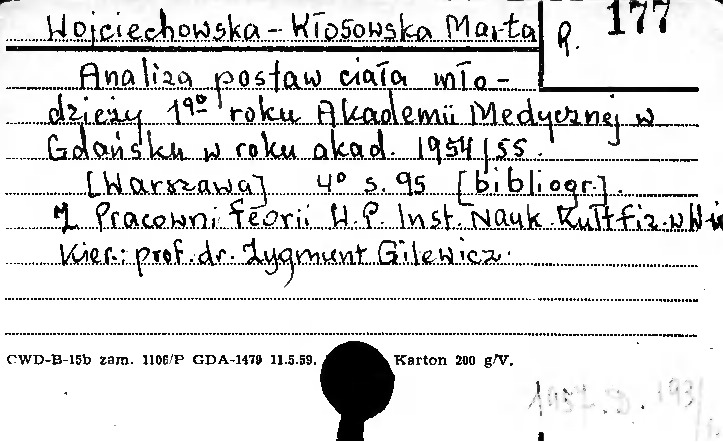 Wojciechowska-Kłosowska Marta
R. 177
Analiza postaw ciała mło-
dzieży 19° roku Akademii Medycznej w
Gdańsku w roku akad. 1954/55.
[Warszawa] 4° s. 95 [bibliogr.].
Z Pracowni Teorii W.P. Inst. Nauk. Kult fiz. w
Kier.: prof. dr. Zygmunt Gilewicz.
CWD-B-15b zam. 1106/P GDA-1479 11.5.59. Karton 200 g/V.
1957.D.193/